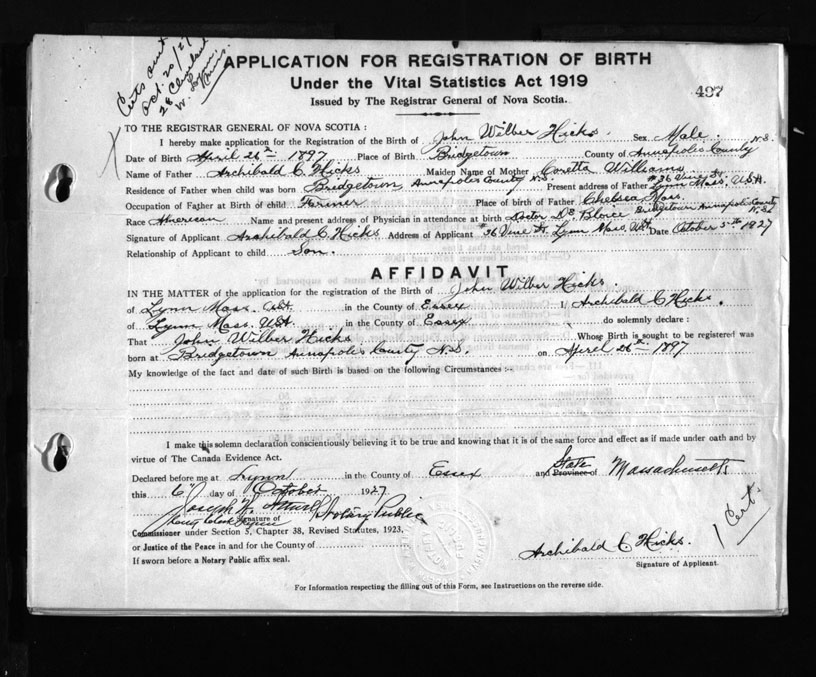 Certs sent
Oct. 20/27
28 Cleveland
W. Lynn
Mass.
APPLICATION FOR REGISTRATION OF BIRTH
Under the Vital Statistics Act 1919
Issued by The Registrar General of Nova Scotia.
497
TO THE REGISTRAR GENERAL OF NOVA SCOTIA :
I hereby make application for the Registration of the Birth of John Wilber Hicks. Sex Male. N.S.
Date of Birth April 26th 1897 Place of Birth Bridgetown County of Annapolis County
Name of Father Archibald C Hicks Maiden Name of Mother Coretta Williams
Residence of Father when child was born Bridgetown, Annapolis County N.S. Present address of Father #36 Vine St. Lynn Mass. U.S.A.
Occupation of Father at Birth of child Farmer Place of birth of Father Chelsea Mass.
Race American Name and present address of Physician in attendance at birth Doctor Bridgetown Annapolis County N.S.
Signature of Applicant Archibald C Hicks Address of Applicant #36 Vine St. Lynn Mass, USA Date October 5th 1927
Relationship of Applicant to child Son.
AFFIDAVIT
IN THE MATTER of the application for the registration of the Birth of John Wilber Hicks.
of Lynn Mass. USA. in the County of Essex I, Archibald C Hicks.
of Lynn Mass. USA. in the County of Essex do solemnly declare :
That John Wilber Hicks Whose Birth is sought to be registered was
born at Bridgetown Annapolis County N.S. on April 26th 1897
My knowledge of the fact and date of such Birth is based on the following Circumstances :-
I make this solemn declaration conscientiously believing it to be true and knowing that it is of the same force and effect as if made under oath and by
virtue of The Canada Evidence Act.
Declared before me at Lynn in the County of Essex and Province of State Massachusetts
this 6 day of October 1927
Joseph Notary Public
Signature of
Commissioner under Section 5, Chapter 38, Revised Statutes, 1923.
or Justice of the Peace in and for the County of
If sworn before a Notary Public affix seal.
Archibald C Hicks.
Signature of Applicant.
1 Cert.
For Information respecting the filling out of this Form, see Instructions on the reverse side.